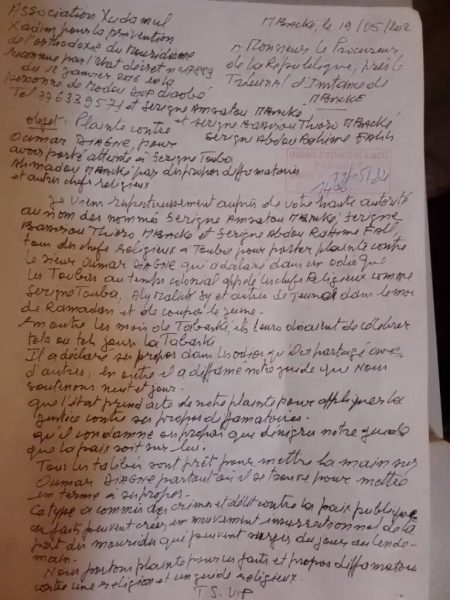 Association Xudamul
Xadim, pour la prévention
de l'orthodoxie du Mouridisme
reconnue par l'état décret
du 12 janvier en la
personne de Modou Diop
Tel 77 633 95 71 et Serigne Amsatou Mbacké
et Serigne Bassirou Thioro Mbacké
Serigne Abdou Rahime Fall
MBacké, le 19/05/202
A Monsieur le Procureur
de la République, près le
Tribunal d'Instance de
MBACKE
Objet: Plainte contre
Oumar DIAGNE, pour
avoir porté atteinte à Serigne Touba
Ahmadou MBacké par des propos diffamatoires
et autres chefs religieux
22/05/22
Je viens respectueusement auprès de votre haute autorité
au nom des nommés Serigne Amsatou MBacké, Serigne
Bassirou Thioro MBacké et Serigne Abdou Rahime Fall,
tous des chefs religieux à Touba pour porter plainte contre
le sieur Oumar DIAGNE qui a déclaré dans un vidéo que
les Toubabs au temps colonial appelé les chefs Religieux comme
Serigne Touba, Aly Malick Sy et autres de jeuner dans le mois
de Ramadan et de couper le jeune.
Am outre les mois de Tabaski, ils leurs disaient de célébrer
tels ou tels jours la Tabaski.
Il a déclaré ses propos dans les vidéos qu'il a partagé avec
d'autres, en outre il a diffamé notre guide que Nous
soutenons nuit et jour.
que l'état prend acte de notre plainte pour appliquer la
justice contre ses propos diffamatoires.
qu'il condamne ses propos qui dénigre notre guide
que la paix soit sur lui.
Tous les talibés sont prêt pour mettre la main sur
Oumar DIAGNE partout où il se trouve pour mettre
en terme à ses propos.
Ce type a commis des crimes et délit contre la paix publique
ces faits peuvent créer un mouvement insurrectionnel de la
part des mourides qui peuvent surgir du jour au lende-
main.
Nous portons plainte pour ces faits et propos diffamatoires
contre une religion et un guide religieux.
T.S.V.P